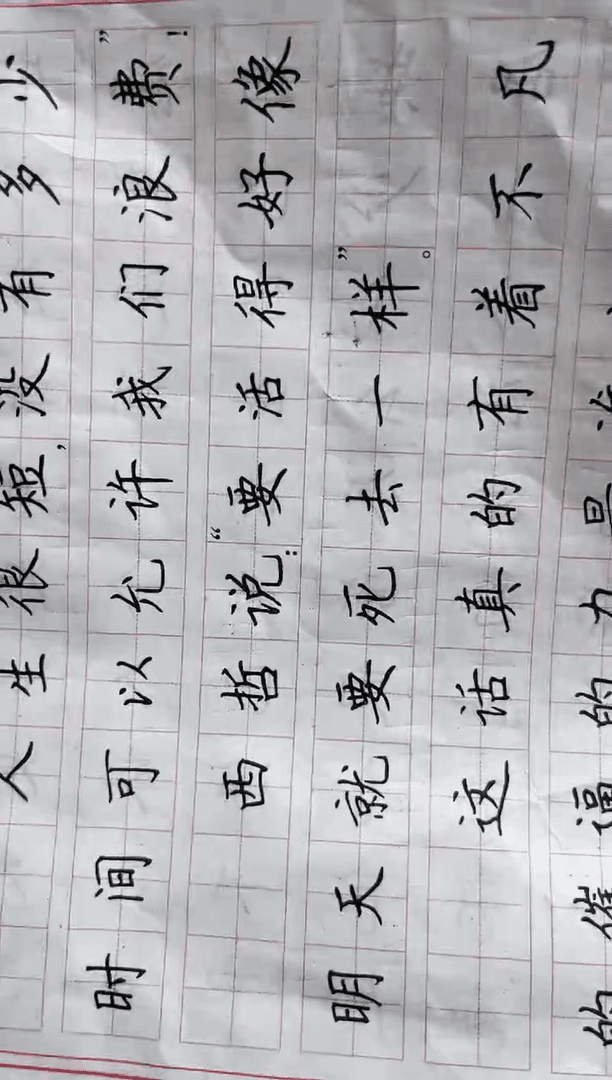 人生很短,没有多少
时间可以允许我们浪费!”
西哲说:“要活得好像
明天就要死去一样”。
这话真的有着不凡
的催逼的力量